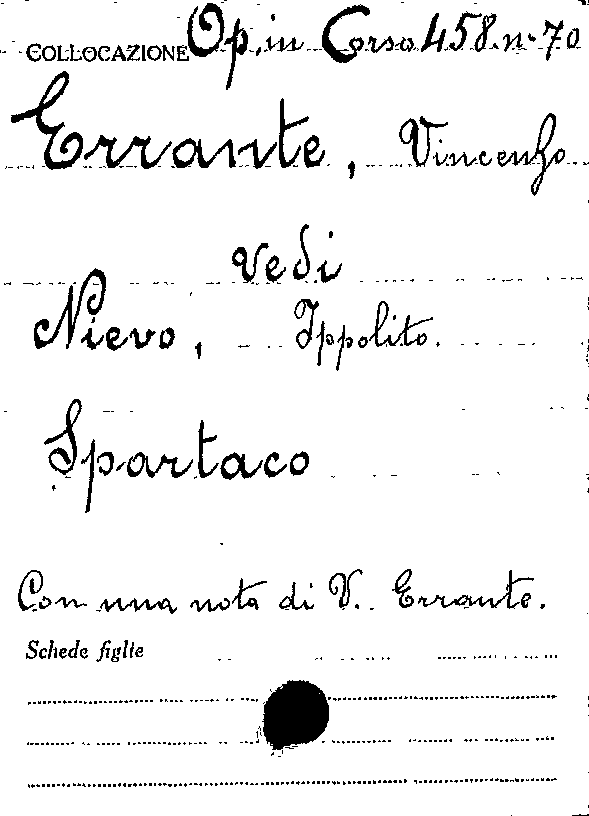 COLLOCAZIONE Op. in Corso 458. n. 70
Errante, Vincenzo
vedi
Nievo, Ippolito.
Spartaco
Con una nota di V. Errante.
Schede figlie